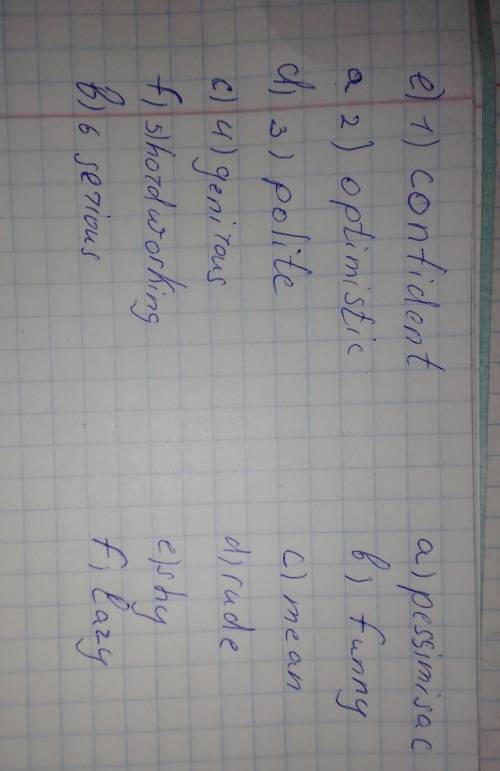 e) 1) contident
a 2) optimistic
d, 3) polite
c) 4) genirous
f, 5) hordworking
b) 6 serious
a) pessimisac
b) funny
c) mean
d) rude
e) shy
f, lazy